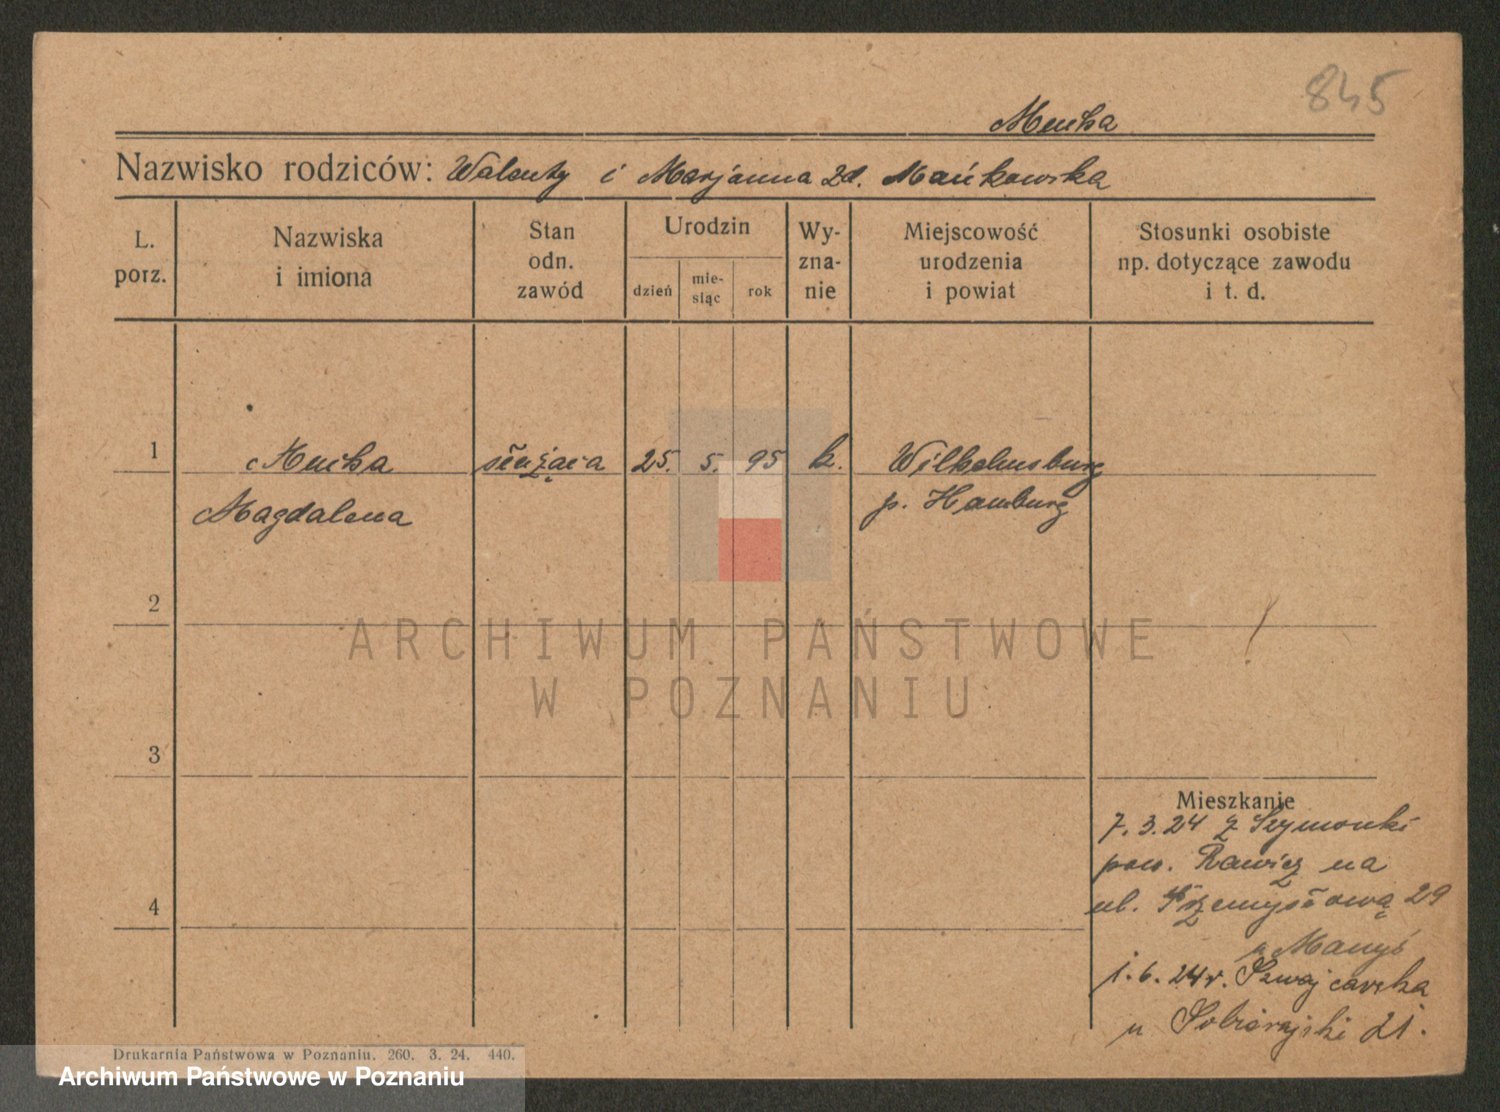 845
Mucha
Nazwisko rodziców: Walenty i Marjanna zd. Mańkowska
L. porz.
Nazwiska i imiona
Stan odn. zawód
Urodzin
dzień
mie-siąc
rok
Wy-zna-nie
Miejscowość urodzenia i powiat
Stosunki osobiste np. dotyczące zawodu i t. d.
1 Mucha służąca 25. 5. 95 k. Wilhelmsburg
Magdalena p. Hamburg
2
3
4
Mieszkanie
7. 3. 24 z Szymonki
pow. Rawicz na
ul. Przemysłową 29
u
1. 6. 24 r. Szwajcarska
u Sobierajski 21.
Drukarnia Państwowa w Poznaniu. 260. 3. 24. 440.
ARCHIWUM PAŃSTWOWE
W POZNANIU
Archiwum Państwowe w Poznaniu